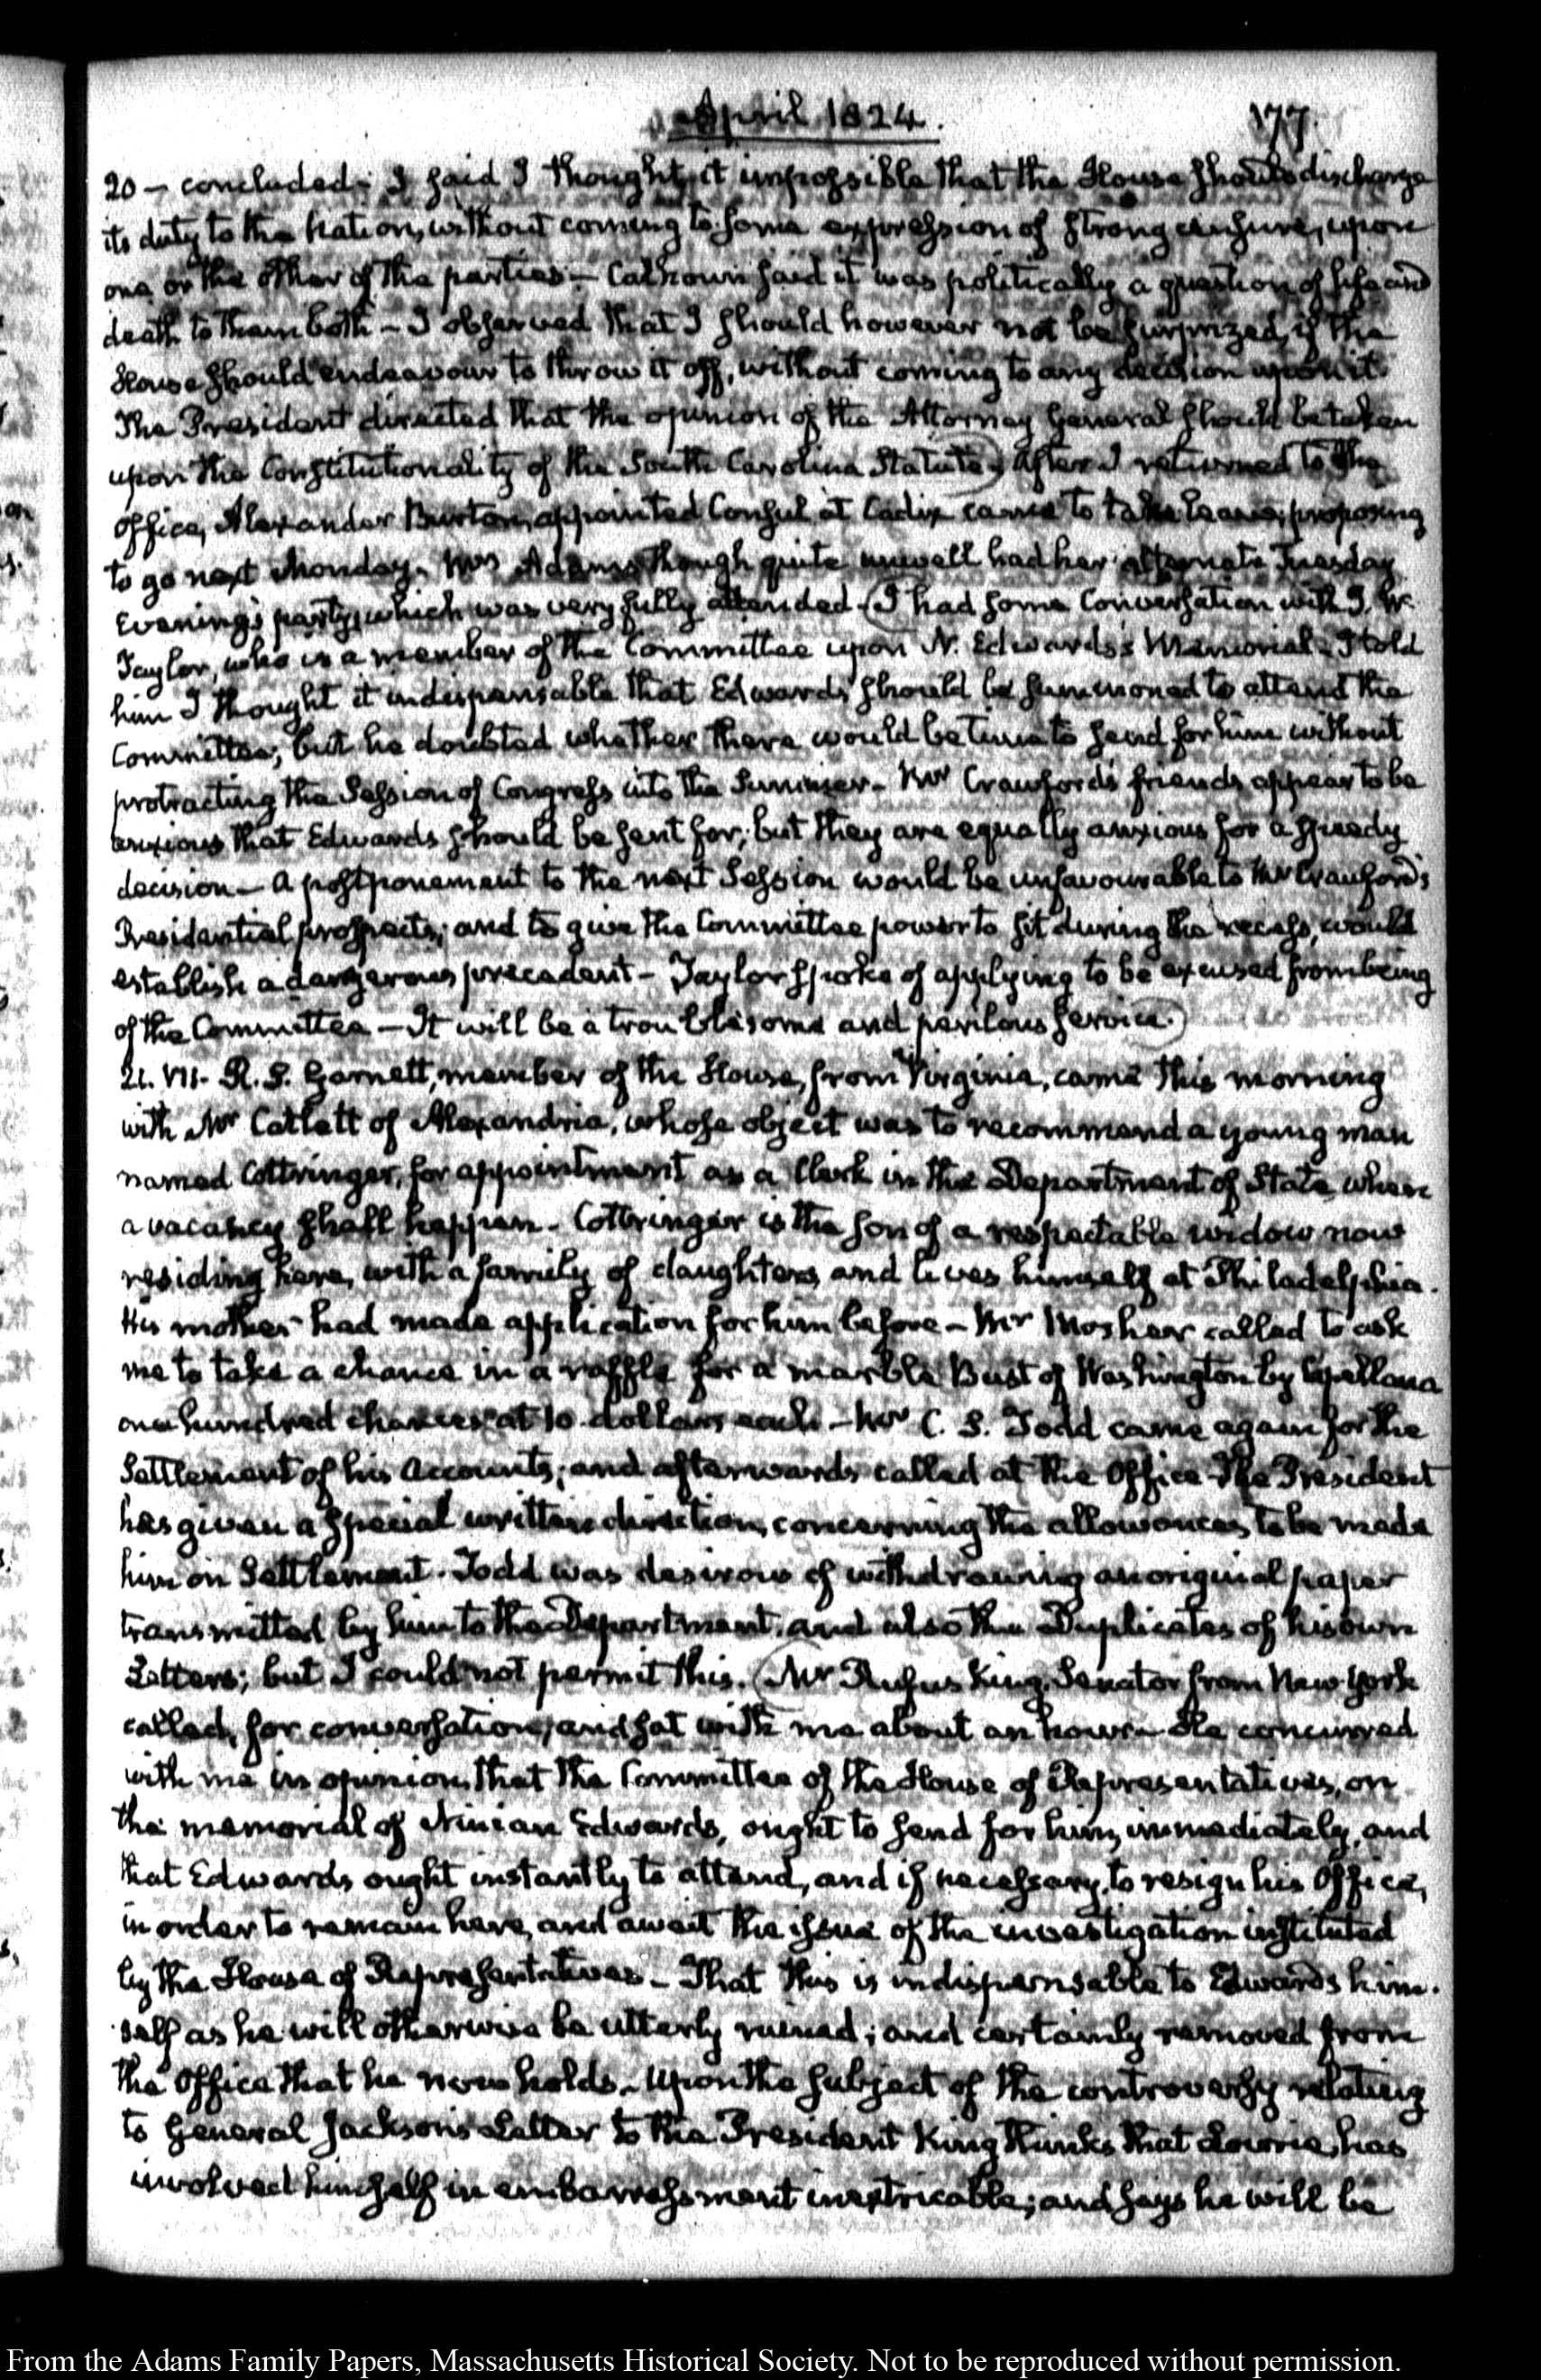 April 1824. 177.
20 — concluded - I said I thought it impossible that the House should discharge
its duty to the Nation, without coming to some expression of strong censure, upon
one or the other of the parties - Calhoun said it was politically a question of life and
death to them both - I observed that I should however not be surprized, if the
House should endeavour to throw it off, without coming to any decision upon it.
The President directed that the opinion of the Attorney General should be taken
upon the Constitutionality of the South Carolina Statute.) After I returned to the
Office, Alexander Burton, appointed Consul at Cadix came to take leave; proposing
to go next Monday. Mrs Adams though quite unwell had her alternate Tuesday
Evening's party, which was very fully attended. (I had some Conversation with J. W.
Taylor, who is a member of the Committee upon N. Edwards's Memorial - I told
him I thought it indispensable that Edwards should be summoned to attend the
Committee; but he doubted whether there would be time to send for him without
protracting the Session of Congress into the Summer. Mr Crawford's friends appear to be
anxious that Edwards should be sent for; but they are equally anxious for a speedy
decision - A postponement to the next Session would be unfavourable to Mr Crawford's
Presidential prospects; and to give the Committee power to sit during the recess, would
establish a dangerous precedent - Taylor spoke of applying to be excused from being
of the Committee - It will be a troublesome and perilous service.)
21. VII. R. S. Garnett, member of the House, from Virginia, came this morning
with Mr Catlett of Alexandria, whose object was to recommend a young man
named Cottringer, for appointment as a Clerk in the Department of State, when
a vacancy shall happen. Cottringer is the son of a respectable widow now
residing here, with a family of daughters, and lives himself at Philadelphia.
His mother had made application for him before - Mr Mosher called to ask
me to take a chance in a raffle for a marble Bust of Washington by Capellano
one hundred chances at 10 dollars each - Mr C. S. Todd came again for the
Settlement of his Accounts; and afterwards called at the Office - The President
has given a special written direction, concerning the allowances to be made
him on Settlement. Todd was desirous of withdrawing an original paper
transmitted by him to the Department, and also the Duplicates of his own
Letters; but I could not permit this. (Mr Rufus King, Senator from New-York
called, for conversation; and sat with me about an hour - He concurred
with me in opinion, that the Committee of the House of Representatives, on
the memorial of Ninian Edwards, ought to send for him, immediately, and
that Edwards ought instantly to attend, and if necessary, to resign his Office,
in order to remain here, and await the issue of the investigation instituted
by the House of Representatives - That this is indispensable to Edwards him-
self as he will otherwise be utterly ruined; and certainly removed from
the Office that he now holds. Upon the subject of the controversy relating
to General Jackson's Letter to the President King thinks that Lowrie, has
involved himself in embarrassment inextricable; and says he will be
From the Adams Family Papers, Massachusetts Historical Society. Not to be reproduced without permission.